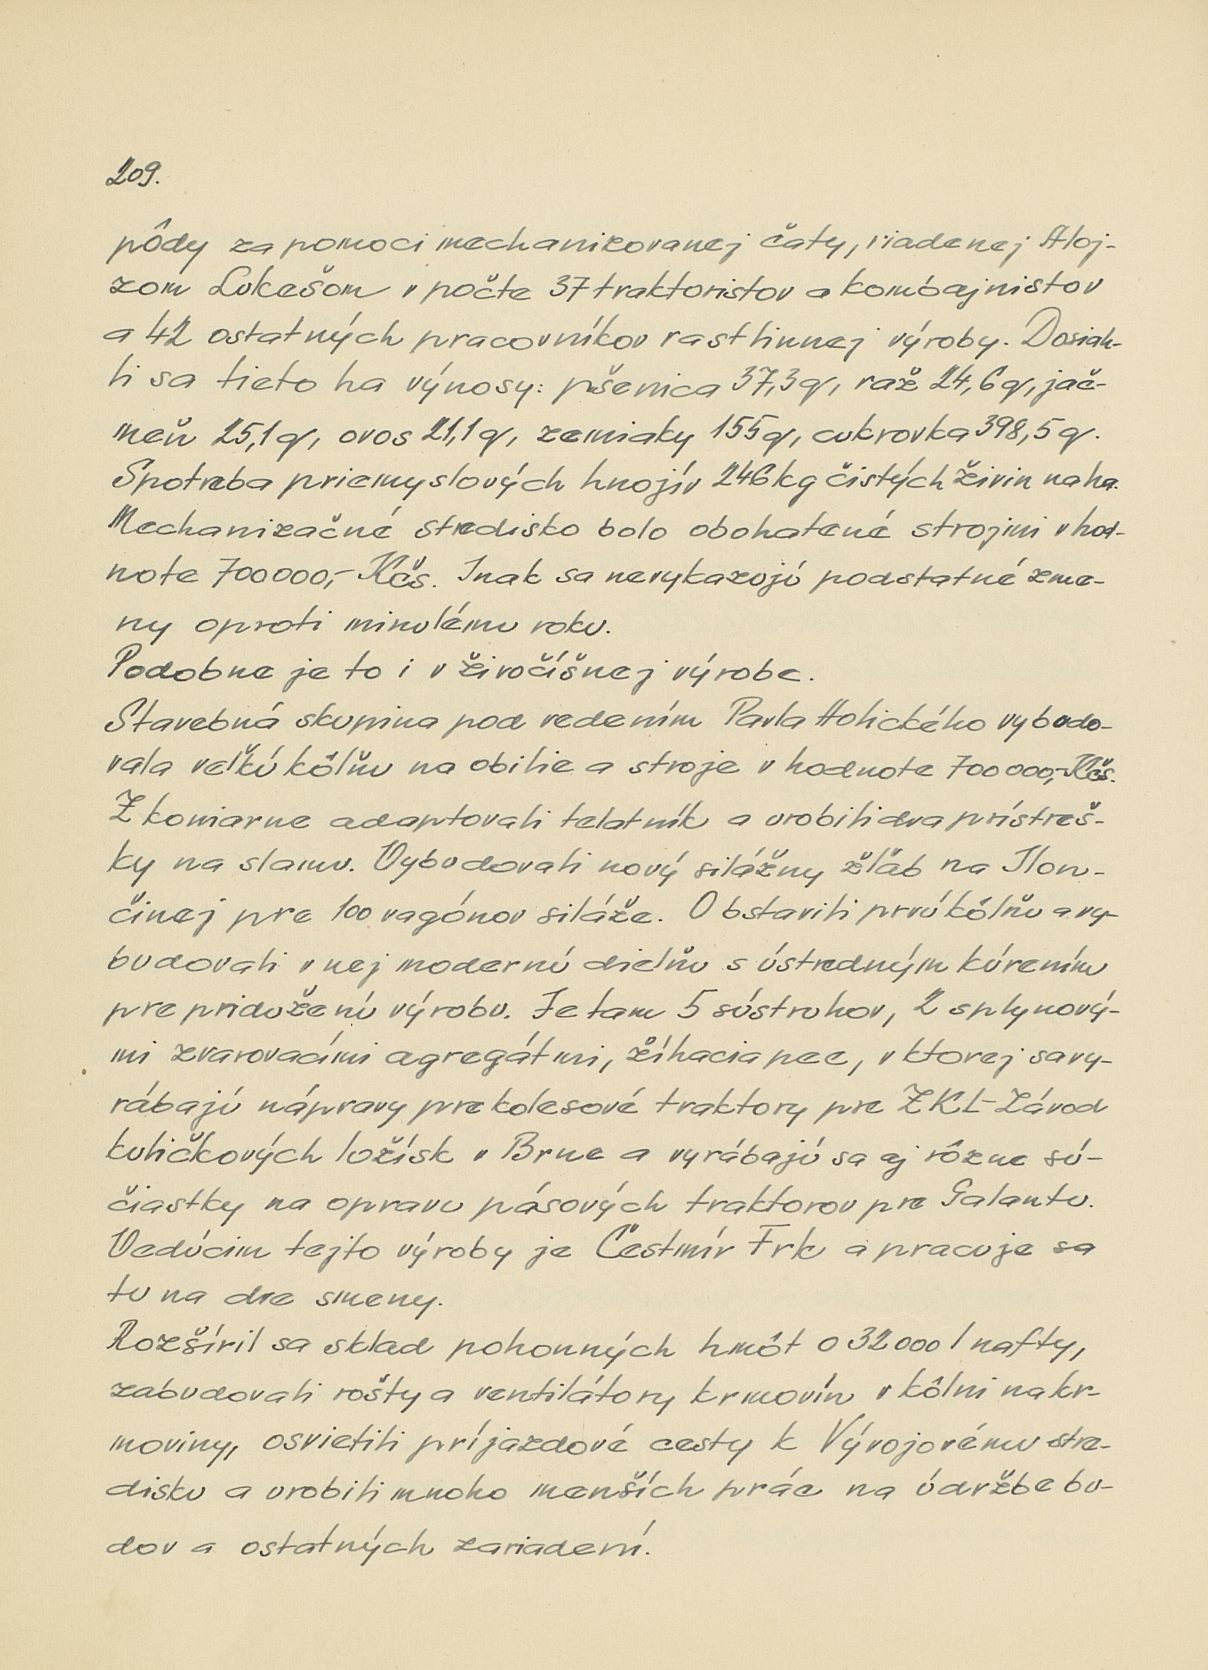 209.
pôdy za pomoci mechanizovanej čaty, riadenej Aloj-
zom Lukešom v počte 37 traktoristov a kombajnistov
a 42 ostatných pracovníkov rastlinnej výroby. Dosiah-
li sa tieto ha výnosy: pšenica 37,3 q, raž 24,6 q, jač-
meň 25,1 q, ovos 21,1 q, zemiaky 155 q, cukrovka 398,5 q.
Spotreba priemyslových hnojív 246 kg čistých živin na ha.
Mechanizačné stredisko bolo obohatené strojmi v hod-
note 700 000,- Kčs. Inak sa nevykazujú podstatné zme-
ny oproti minulému roku.
Podobne je to i v živočíšnej výrobe.
Stavebná skupina pod vedením Pavla Holického vybudo-
vala veľkú kôlňu na obilie a stroje v hodnote 700 000,- Kčs.
Z koniarne adaptovali telatník a urobili dva prístreš-
ky na slamu. Vybudovali nový silážny žľab na Ilon-
činej pre 100 vagónov siláže. Obstavili prvú kôlňu a vy-
budovali v nej modernú dielňu s ústredným kúrením
pre pridruženú výrobu. Je tam 5 sústruhov, 2 splynový-
mi zvarovacími agregátmi, žíhacia pec, v ktorej sa vy-
rábajú nápravy pre kolesové traktory pre ZKL-Závod
kuličkových ložísk v Brne a vyrábajú sa aj rôzne sú-
čiastky na opravu pásových traktorov pre Galantu.
Vedúcim tejto výroby je Čestmír Frk a pracuje sa
tu na dve smeny.
Rozšíril sa sklad pohonných hmôt o 32 000 l nafty,
zabudovali rošty a ventilátory krmovín v kôlni na kr-
moviny, osvietili príjazdové cesty k Vývojovému stre-
disku a urobili mnoho menších prác na údržbe bu-
dov a ostatných zariadení.